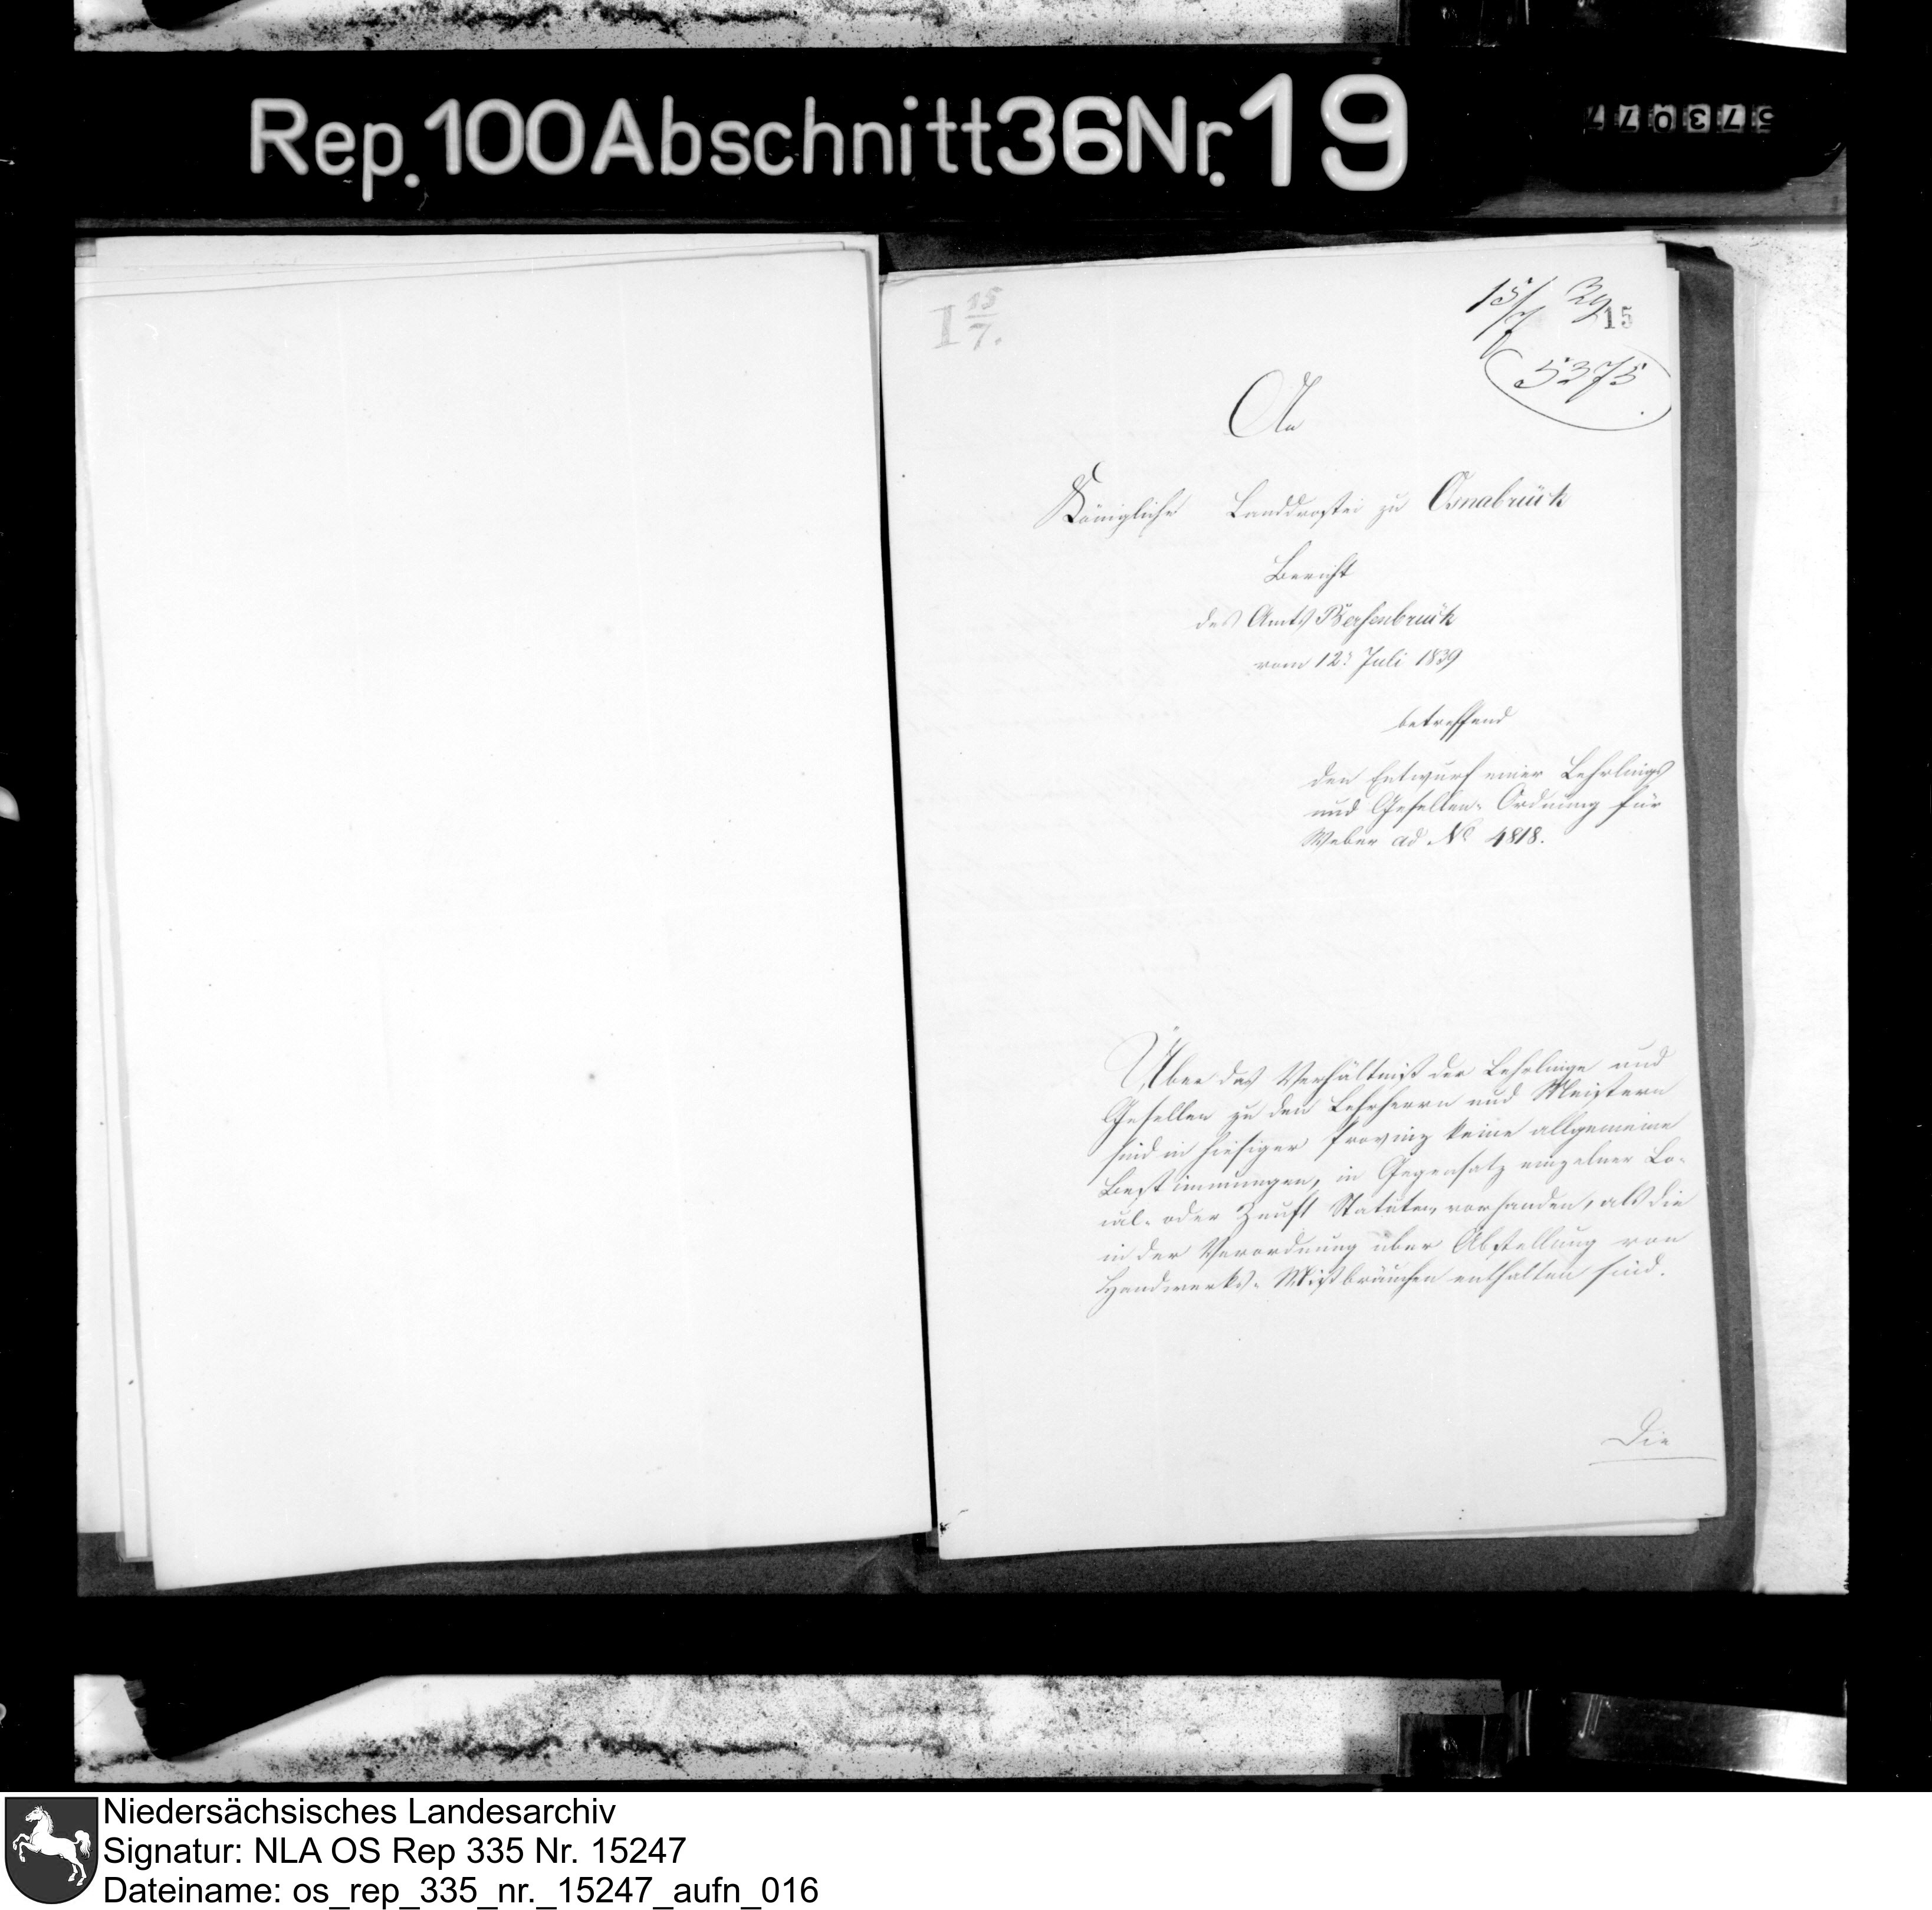 Rep. 100 Abschnitt 36 Nr. 19
I 15/7.
15/7 39
15
5375
An
Königliche Landdrostei zu Osnabrück
Bericht
des Amts Bersenbrück
vom 12. Juli 1839
betreffend
den Entwurf einer Lehrlings
und Gesellen-Ordnung für
Weber ad No 4818.
Über das Verhältniß der Lehrlinge und
Gesellen zu den Lehrherrn und Meistern
sind in hiesiger Provinz keine allgemeine
Bestimmungen, in Gegensatz einzelner Lo-
cal- oder Zunft Statuten, vorhanden, als die
in der Verordnung über Abstellung von
Handwerks-Mißbräuchen enthalten sind.
Die
Niedersächsisches Landesarchiv
Signatur: NLA OS Rep 335 Nr. 15247
Dateiname: os_rep_335_nr._15247_aufn_016